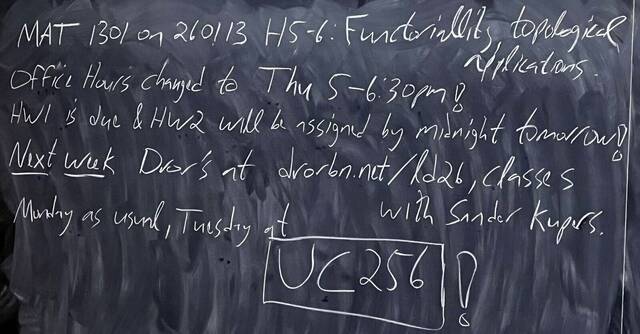 MAT 1301 on 260113 H5-6: Functoriality, topological applications.
Office Hours changed to Thu 5-6:30pm!
HW1 is due & HW2 will be assigned by midnight tomorrow!
Next week Dror's at drorbn.net/ld26, classes with Sander Kupers.
Monday as usual, Tuesday at
UC256!